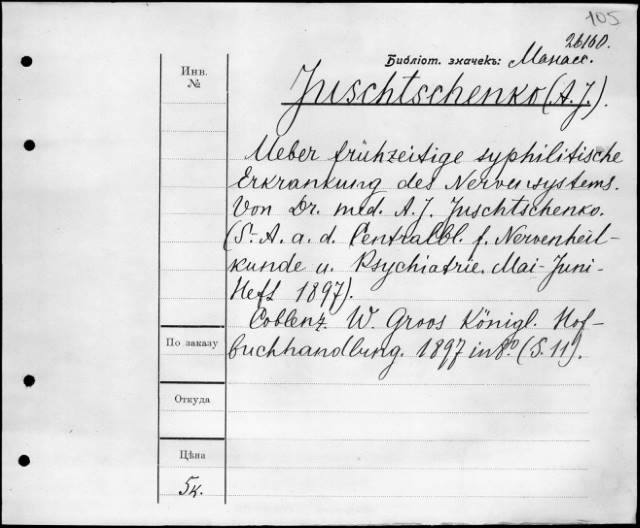 105
26160.
Библіот. значекъ: Манасс.
Инв.
№
Juschtschenko (A. J.).
Ueber frühzeitige syphilitische
Erkrankung des Nervensystems.
Von Dr. med. A. J. Juschtschenko.
(S. A. a. d. Centralbl. f. Nervenheil-
kunde u. Psychiatrie. Mai-Juni-
Heft 1897).
Coblenz. W. Groos Königl. Hof-
buchhandlung. 1897 in 8º (S. 11).
По заказу
Откуда
Цѣна
5к.